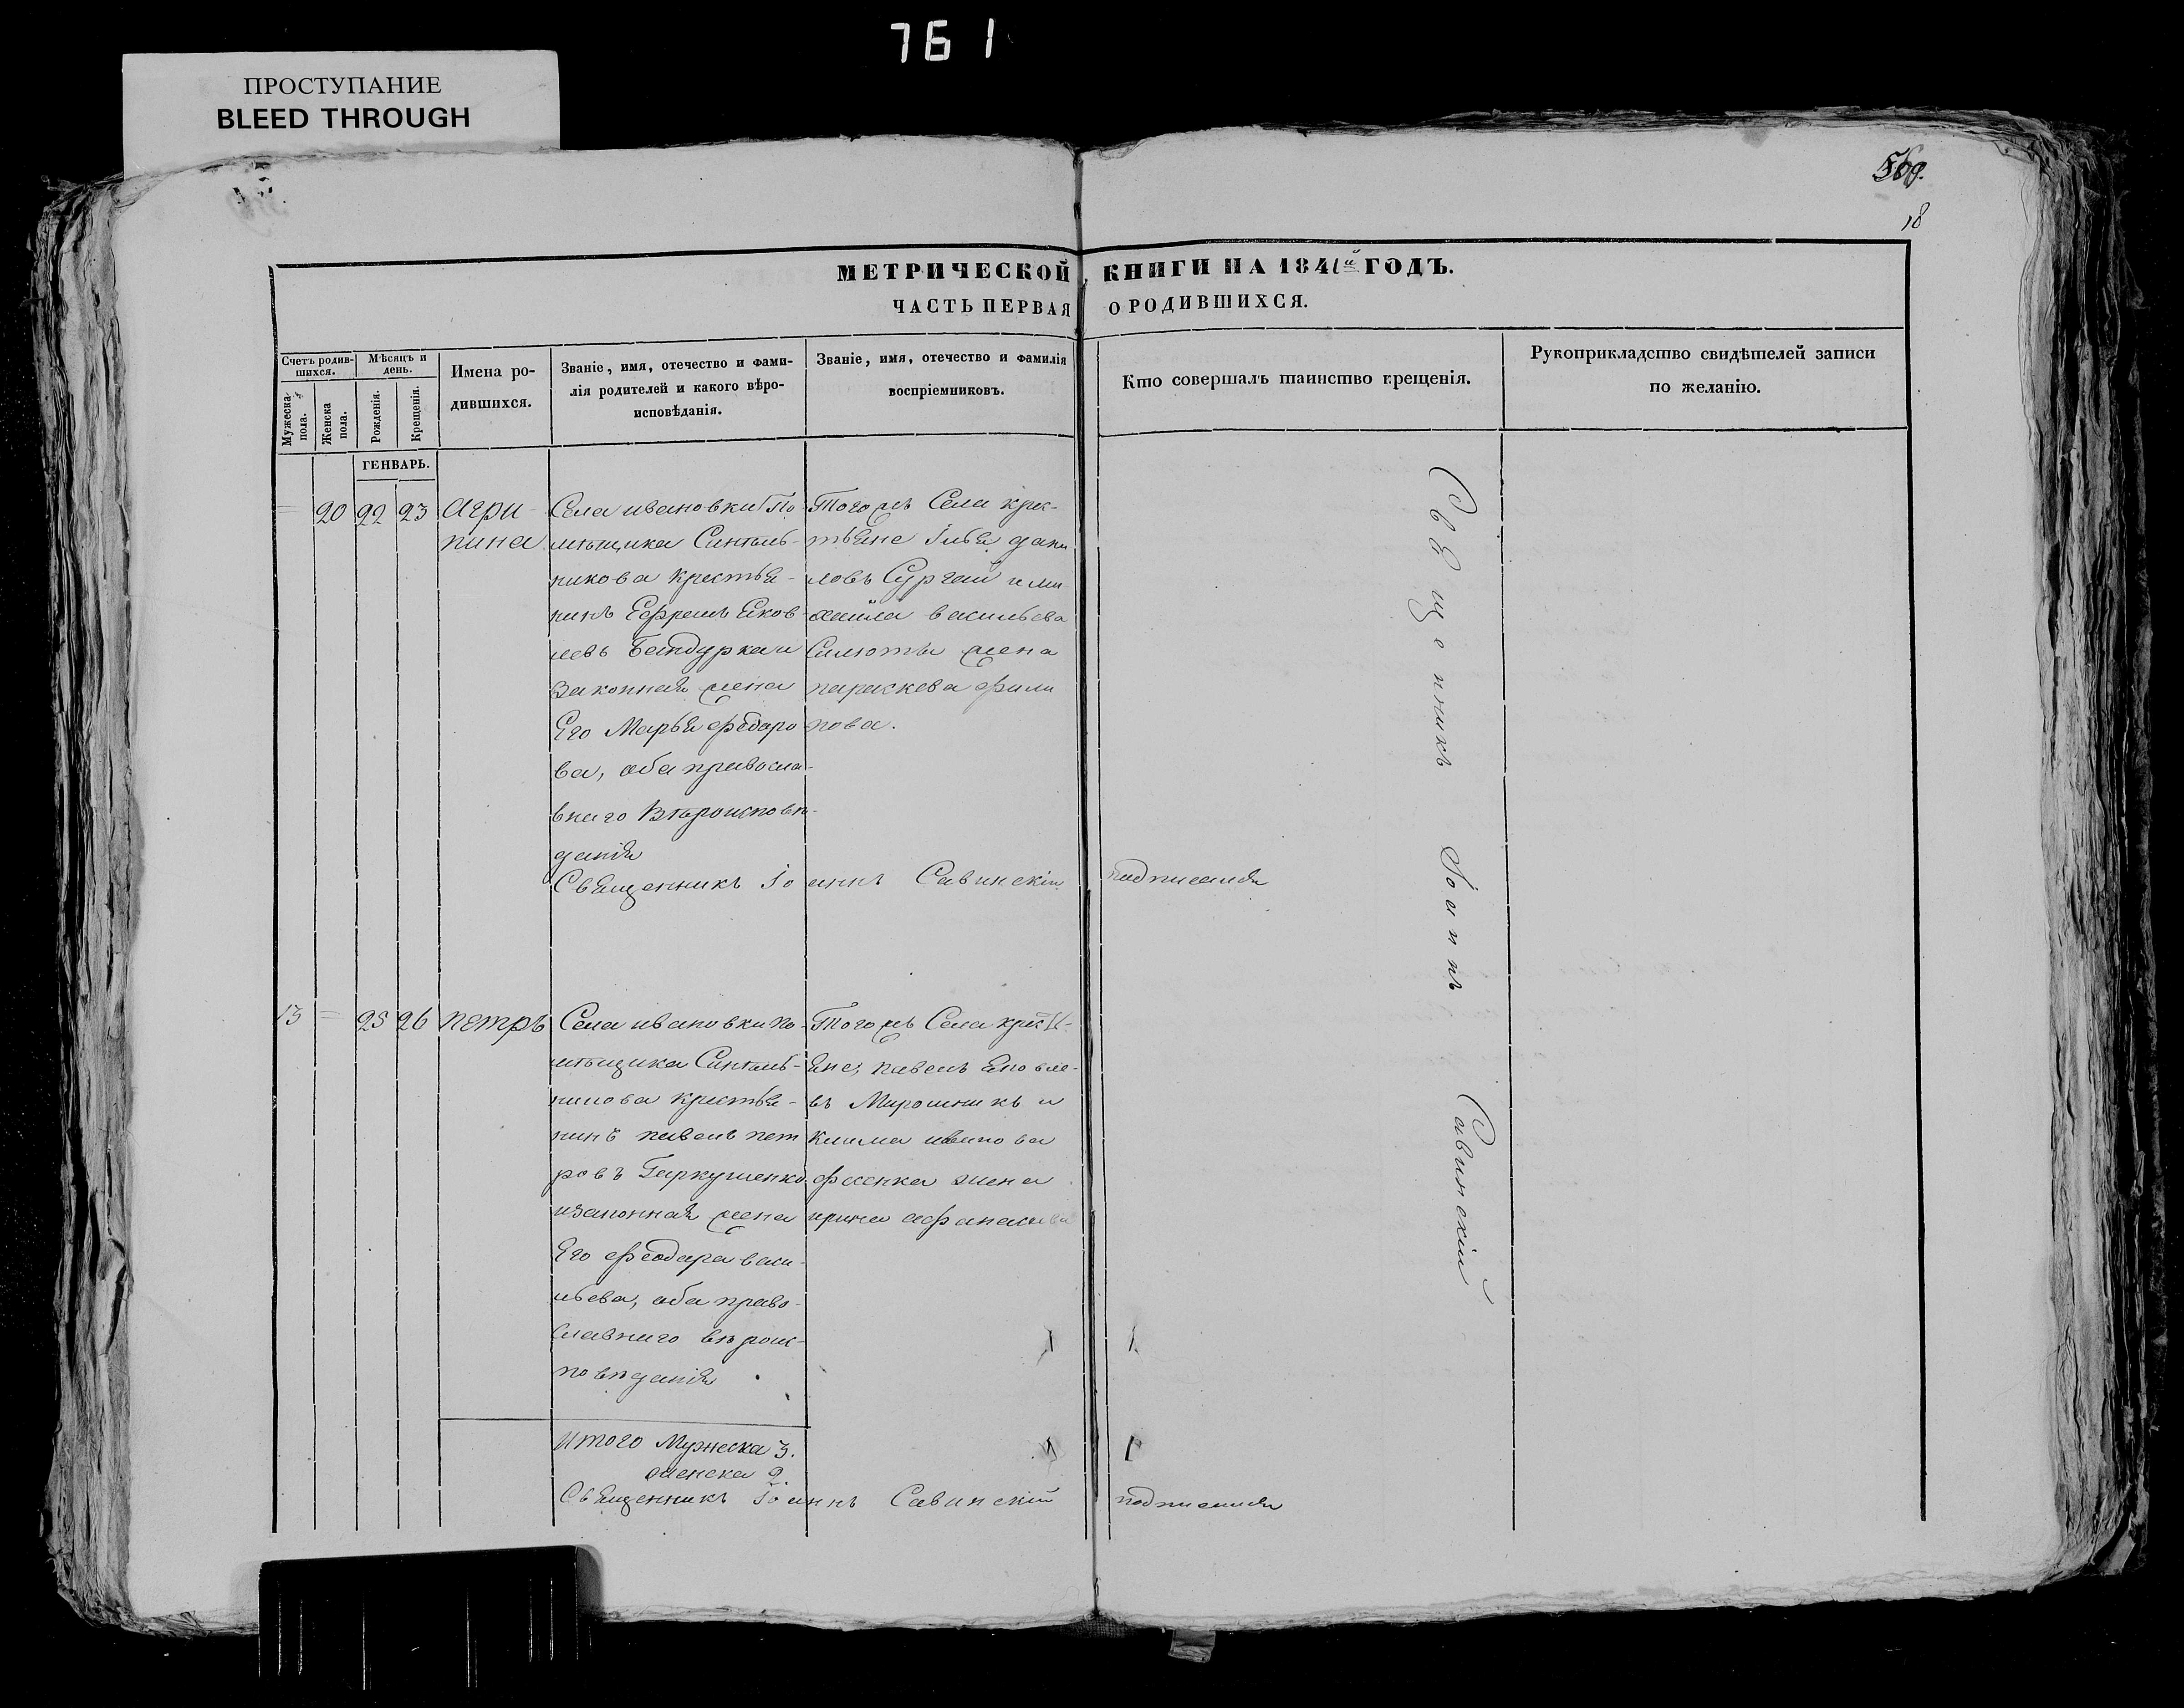 761
ПРОСТУПАНИЕ
BLEED THROUGH
18
МЕТРИЧЕСКОЙ КНИГИ НА 1841й ГОДЪ.
ЧАСТЬ ПЕРВАЯ О РОДИВШИХСЯ.
Счетъ родив-
шихся.
Мужеска пола.
Женска пола.
Мѣсяцъ и
день.
Рожденія.
Крещенія.
Имена ро-
дившихся.
Званіе, имя, отечество и фами-
лія родителей и какого вѣро-
исповѣданія.
Званіе, имя, отечество и фамилія
воспріемниковъ.
Кто совершалъ таинство крещенія.
Рукоприкладство свидѣтелей записи
по желанію.
ГЕНВАРЬ.
= 20 22 23
Агри-
пина
Села ивановки По
мѣщика Синтель-
никова крестья-
нинъ Ефремъ Яков-
левъ Бандурка и
законная жена
Его Марья федаро
ва, оба правосла-
внаго Вѣроисповѣ-
данія
Тогожъ Села крес-
тьяне Ілья дани
ловъ Сургай и ми
хайла васильева
жена
параскева фили
пова.
Священникъ Іоаннъ Савинскій подписался
13 = 25 26
петръ
Села ивановки по-
мѣщика Синтель-
никова крестья-
нинъ павелъ пет
ровъ Гаркушенко
изаконная жена
Его феодара васи-
льева, оба право-
славнаго вѣроис-
повѣданія
Тогожъ Села
яне, павелъ яковле-
въ Мирошникъ и
клима иванова
жена
ирина афанасьева
Итого Мужеска 3.
женска 2.
Священникъ Іоаннъ Савинскій подписался
Священникъ Іоаннъ Савинскій